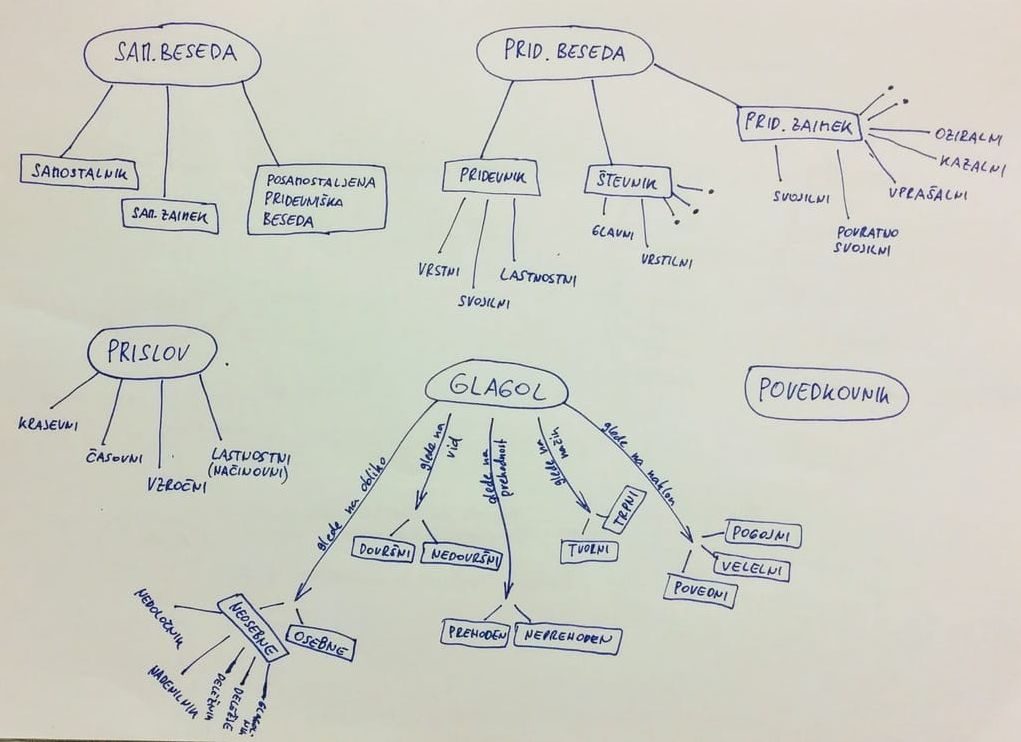 SAM. BESEDA
SAMOSTALNIK
SAM. ZAIMEK
POSAMOSTALJENA
PRIDEVNIŠKA
BESEDA
PRID. BESEDA
PRIDEVNIK
VRSTNI
SVOJILNI
LASTNOSTNI
ŠTEVNIK
GLAVNI
VRSTILNI
PRID. ZAIMEK
SVOJILNI
POVRATNO
SVOJILNI
VPRAŠALNI
KAZALNI
OZIRALNI
PRISLOV
KRAJEVNI
ČASOVNI
VZROČNI
LASTNOSTNI
(NAČINOVNI)
GLAGOL
glede na obliko
NEOSEBNE
OSEBNE
NEDOLOČNIK
NAMENILNIK
DELEŽNIK
DELEŽJE
GLAGOL-
NIK
glede na
vid
DOVRŠNI
NEDOVRŠNI
glede na
prehodnost
PREHODEN
NEPREHODEN
glede na
način
TVORNI
TRPNI
glede na naklon
POVEDNI
VELELNI
POGOJNI
POVEDKOVNIK